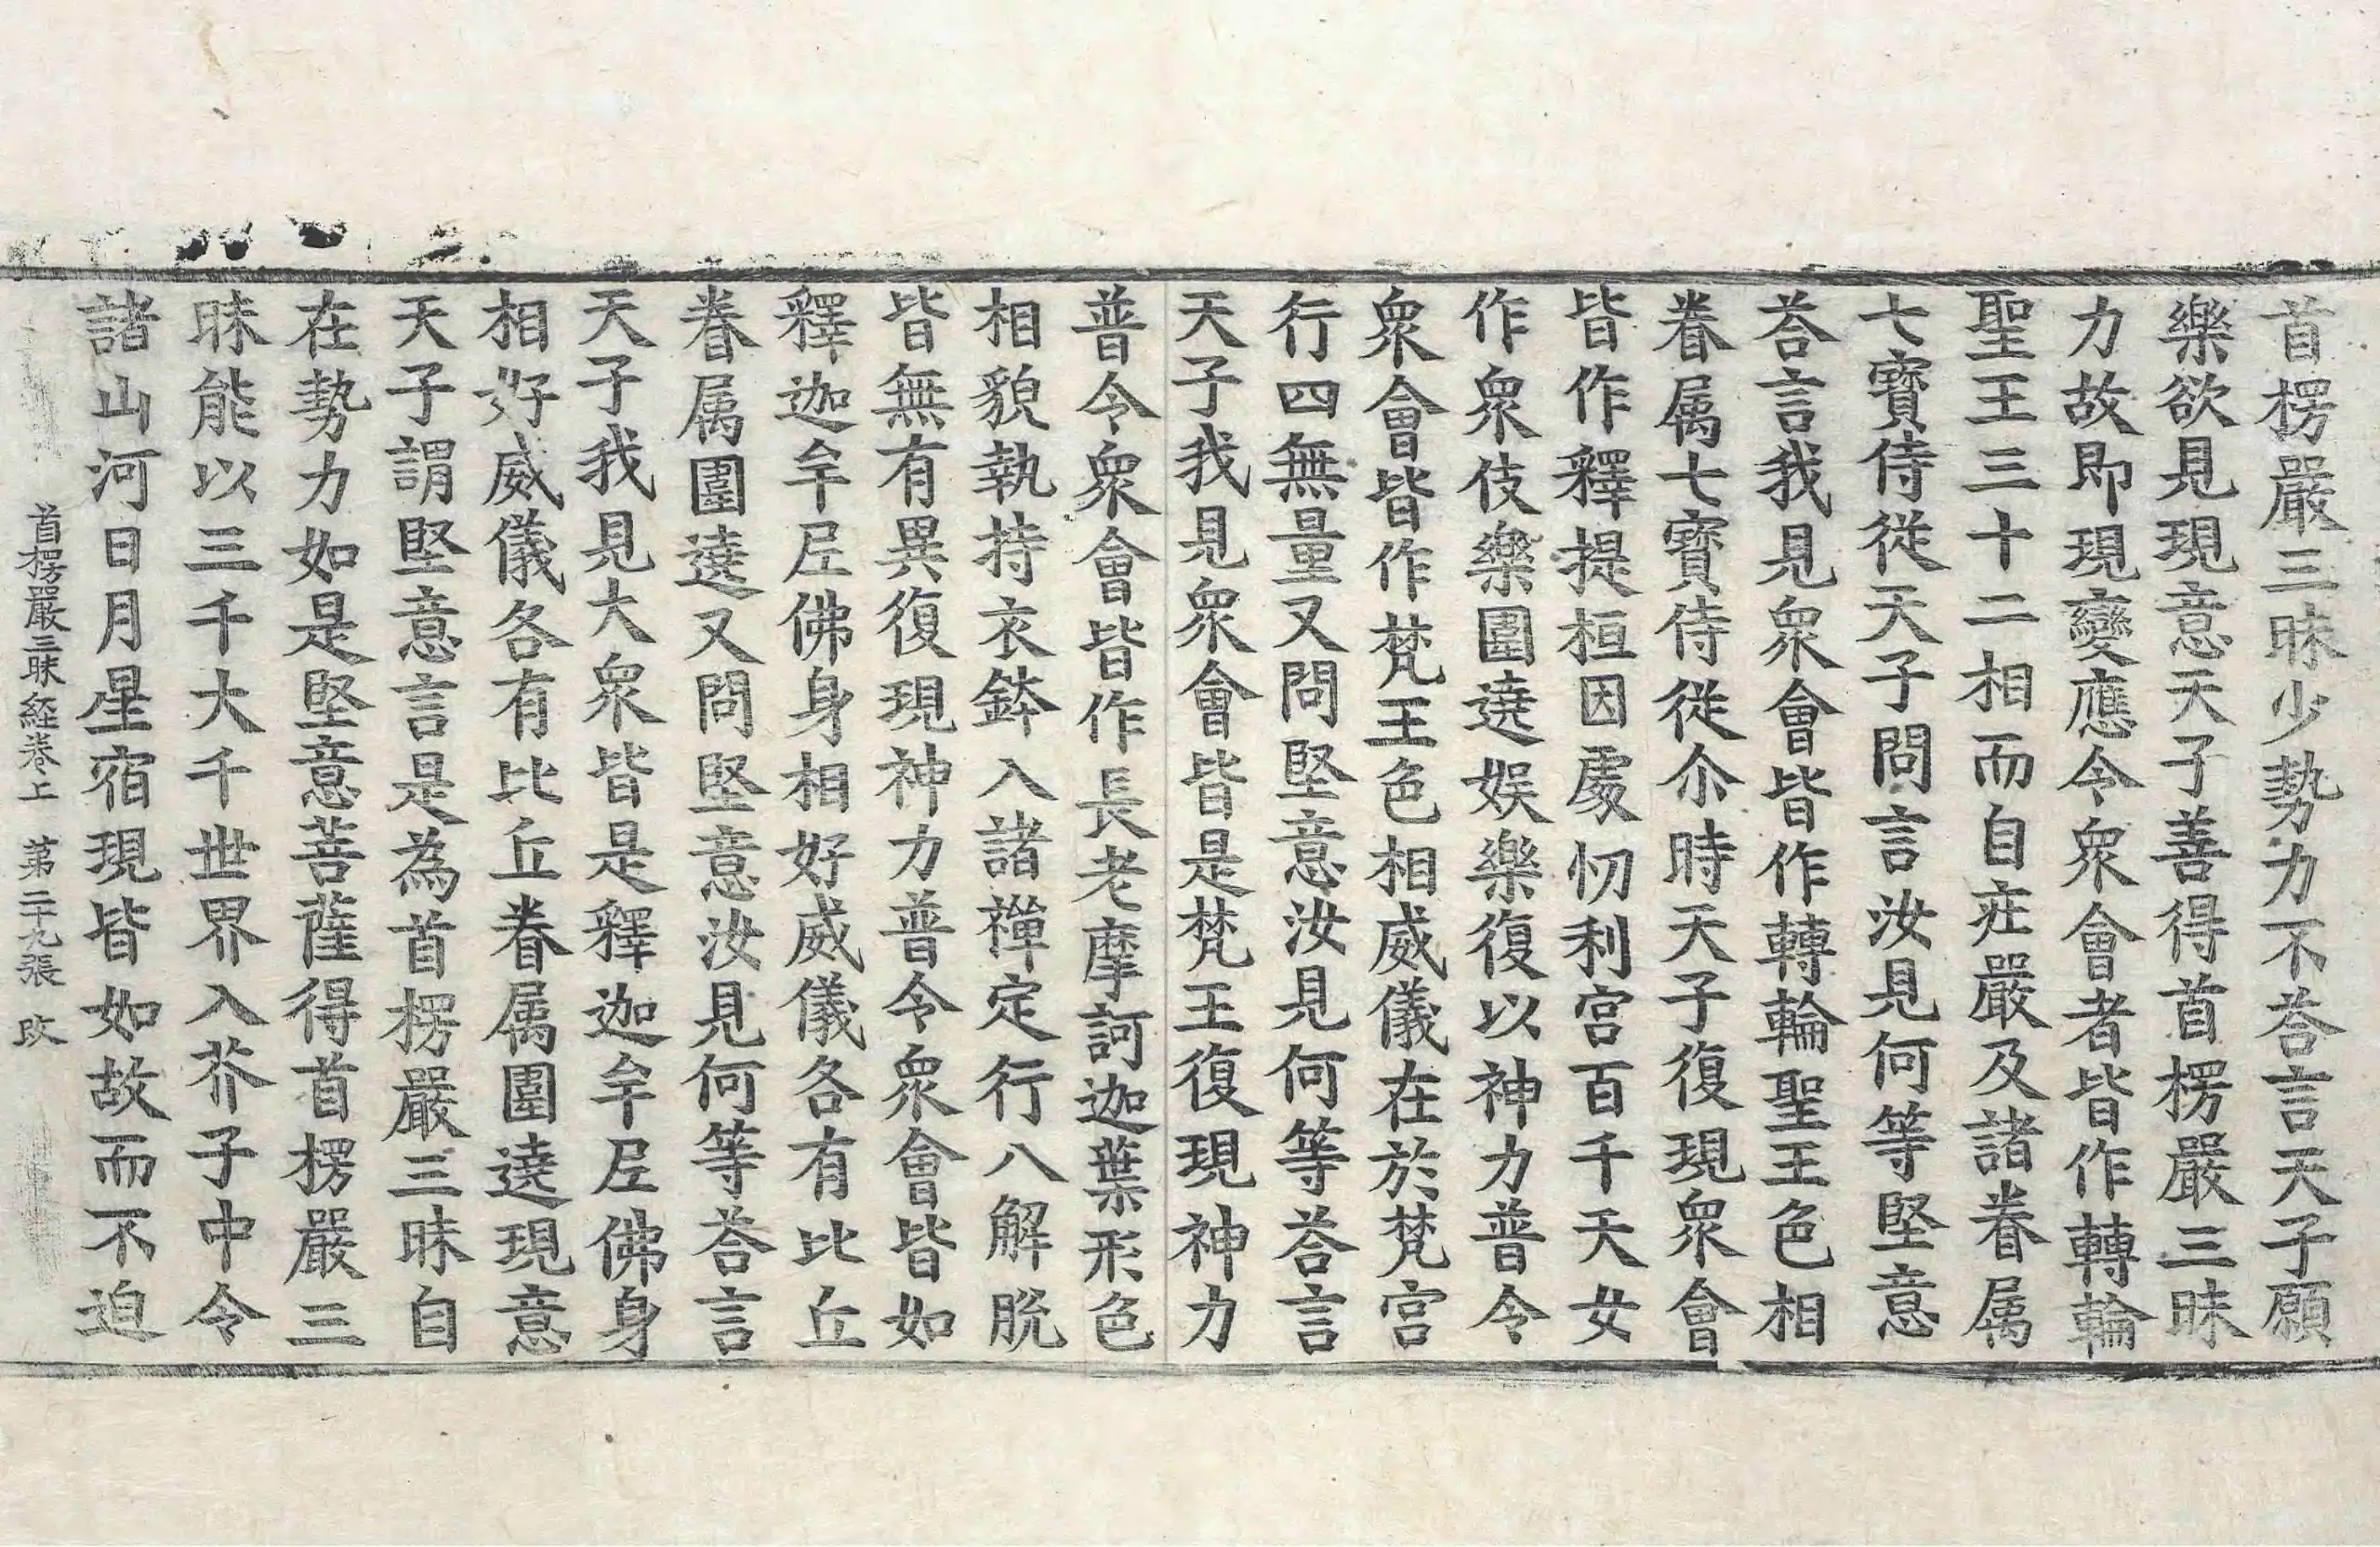 首楞嚴三昧少勢力不荅言天子願
樂欲見現意天子善得首楞嚴三昧
力故即現變應令衆會者皆作轉輪
聖王三十二相而自庄嚴及諸眷属
七寳侍從天子問言汝見何等堅意
荅言我見衆會皆作轉輪聖王色相
眷属七寳侍從尒時天子復現衆會
皆作釋提桓因處忉利宫百千天女
作衆伎樂圍遶娱樂復以神力普令
衆會皆作梵王色相威儀在於梵宫
行四無量又問堅意汝見何等荅言
天子我見衆會皆是梵王復現神力
普令衆會皆作長老摩訶迦葉形色
相貌執持衣鉢入諸禪定行八解脱
皆無有異復現神力普令衆會皆如
釋迦牟尼佛身相好威儀各有比丘
眷属圍遶又問堅意汝見何等荅言
天子我見大衆皆是釋迦牟尼佛身
相好威儀各有比丘眷属圍遶現意
天子謂堅意言是為首楞嚴三昧自
在勢力如是堅意菩薩得首楞嚴三
昧能以三千大千世界入芥子中令
諸山河日月星宿現皆如故而不迫
首楞嚴三昧経卷上 第二十九張 改